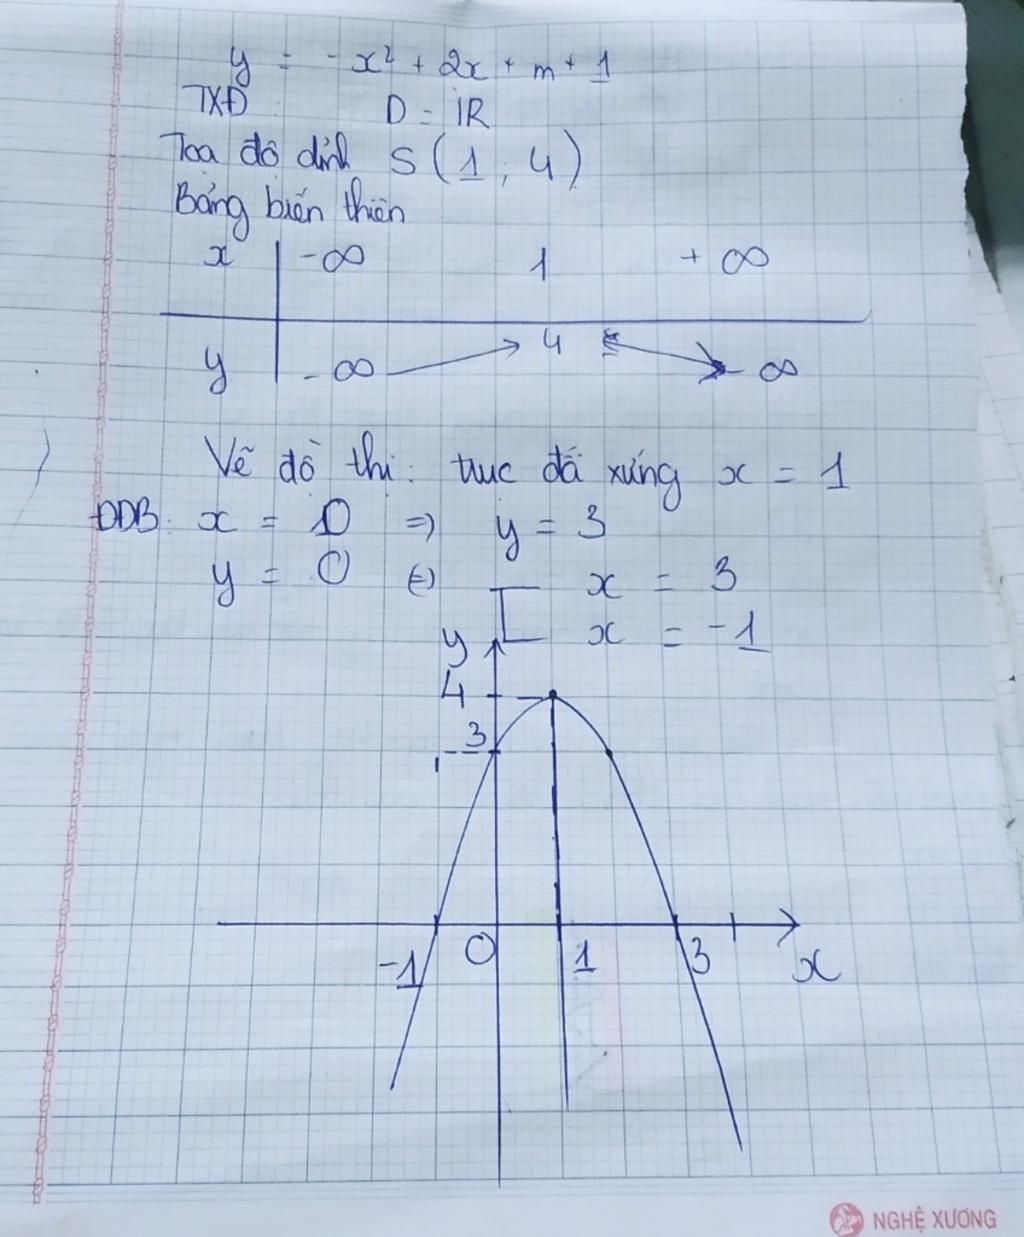 y = -x² + 2x + m + 1
TXĐ: D = IR
Tọa độ đỉnh S (1; 4)
Bảng biến thiên
x -∞ 1 + ∞
y -∞ 4 - ∞
Vẽ đồ thị: trục đối xứng x = 1
ĐĐB: x = 0 => y = 3
y = 0 <=> x = 3
x = -1
y
4
3
-1 0 1 3 x
NGHỆ XƯƠNG